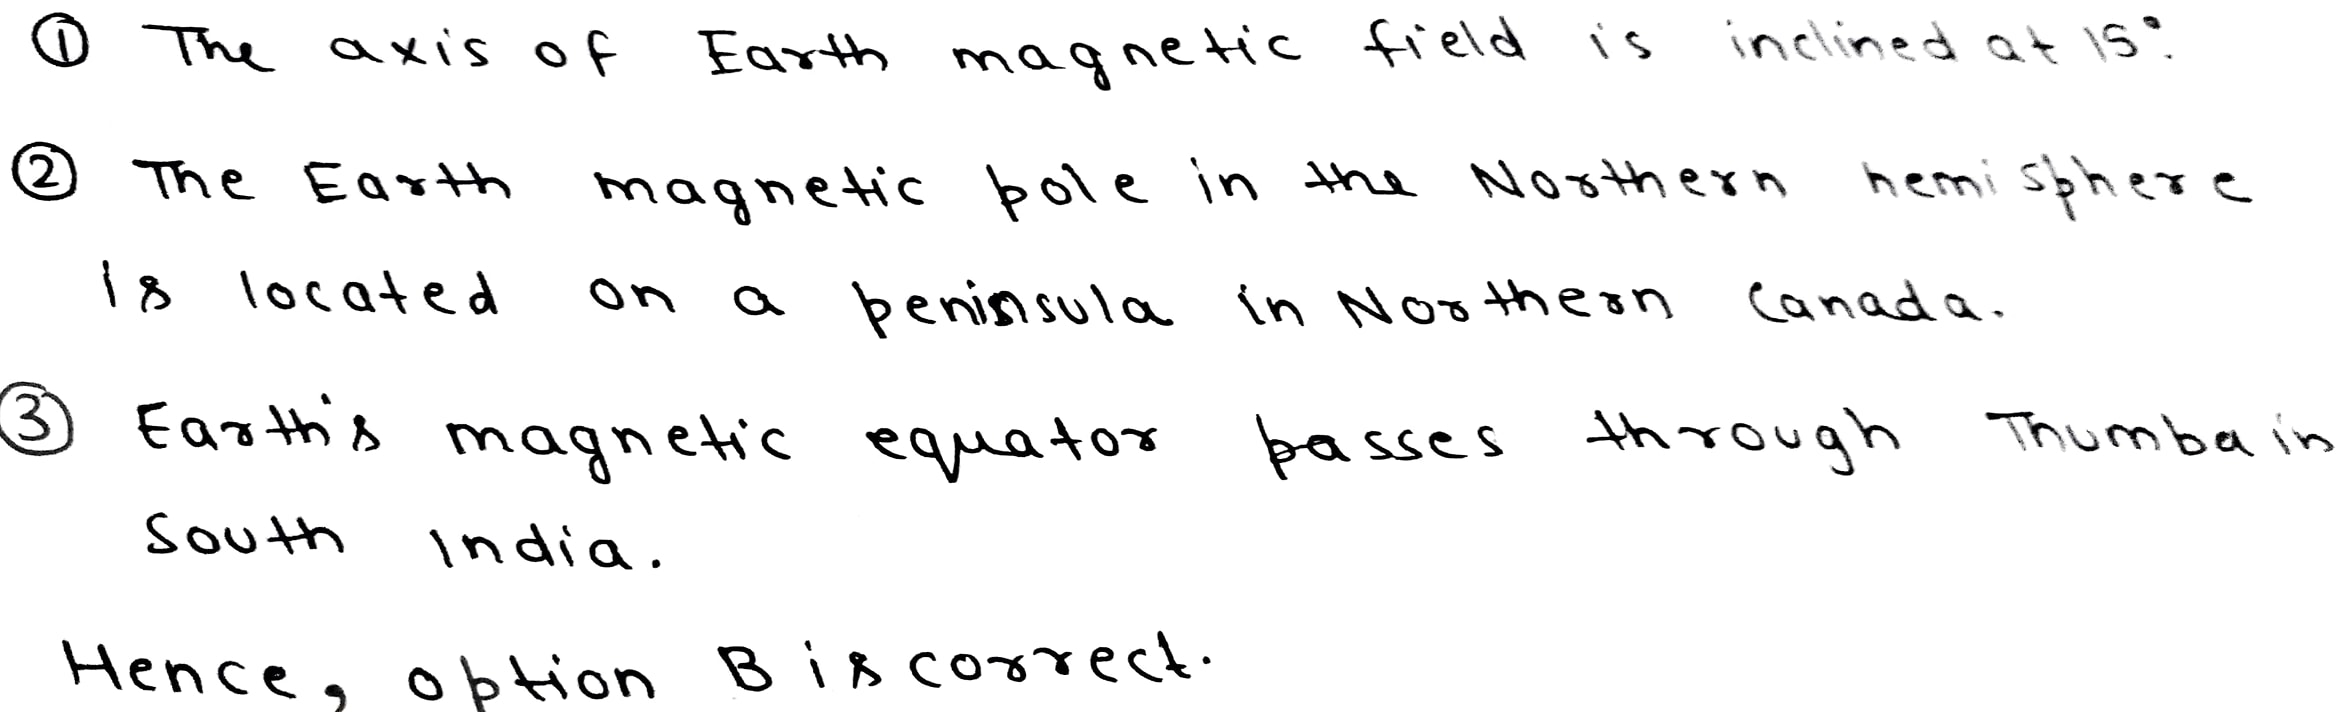 ① The axis of Earth magnetic field is inclined at 15°.
② The Earth magnetic pole in the Northern hemisphere
is located on a peninsula in Northern Canada.
③ Earth's magnetic equator passes through Thumba in
South India.
Hence, option B is correct.